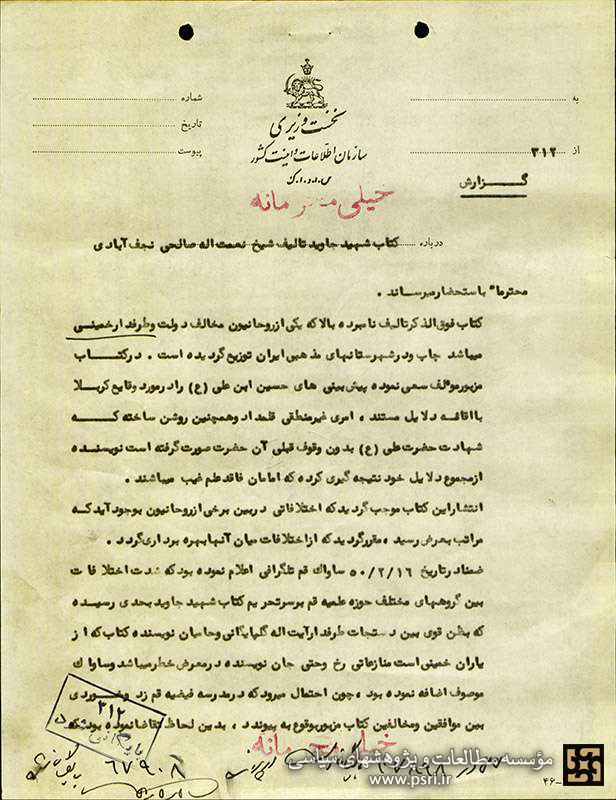 به
شماره
نخست وزیری
تاریخ
سازمان اطلاعات و امنیت کشور
پیوست
از ۳۱۲
س.ا.و.ا.ک
گزارش
خیلی محرمانه
درباره کتاب شهید جاوید تالیف شیخ نعمت اله صالحی نجف آبادی
محترما" باستحضار میرساند .
کتاب فوق الذکر تالیف نامبرده بالا که یکی از روحانیون مخالف دولت و طرفدار خمینی
میباشد چاپ و در شهرستانهای مذهبی ایران توزیع گردیده است . در کتاب
مزبور مولف سعی نموده پیش بینی های حسین ابن علی (ع) را در مورد وقایع کربلا
با اقامه دلایل مستند ، امری غیر منطقی قلمداد و همچنین روشن ساخته که
شهادت حضرت علی (ع) بدون وقوف قبلی آن حضرت صورت گرفته است نویسنده
از مجموع دلایل خود نتیجه گیری کرده که امامان فاقد علم غیب میباشند .
انتشار این کتاب موجب گردید که اختلافاتی در بین برخی از روحانیون بوجود آید که
مراتب بعرض رسید ، مقرر گردید که از اختلافات میان آنها بهره برداری گردد .
ضمنا در تاریخ ۵۰/۲/۱۶ ساواک قم تلگرافی اعلام نموده بود که شدت اختلافات
بین گروههای مختلف حوزه علمیه قم بر سر تحریم کتاب شهید جاوید بحدی رسیده
که بظن قوی بین دستجات طرفدار آیت اله گلپایگانی و حامیان نویسنده کتاب که از
یاران خمینی است منازعاتی رخ و حتی جان نویسنده در معرض خطر میباشد و ساواک
موصوف اضافه نموده بود ، چون احتمال میرود که در مدرسه فیضیه قم زد و خوردی
بین موافقین و مخالفین کتاب مزبور بوقوع به پیوندد ، بدین لحاظ تقاضا نموده بود که
۳۱۲
بایگانی شود
خیلی محرمانه
۶۷۹۰۸
۴۶-
مؤسسه مطالعات و پژوهشهای سیاسی
www.psri.ir